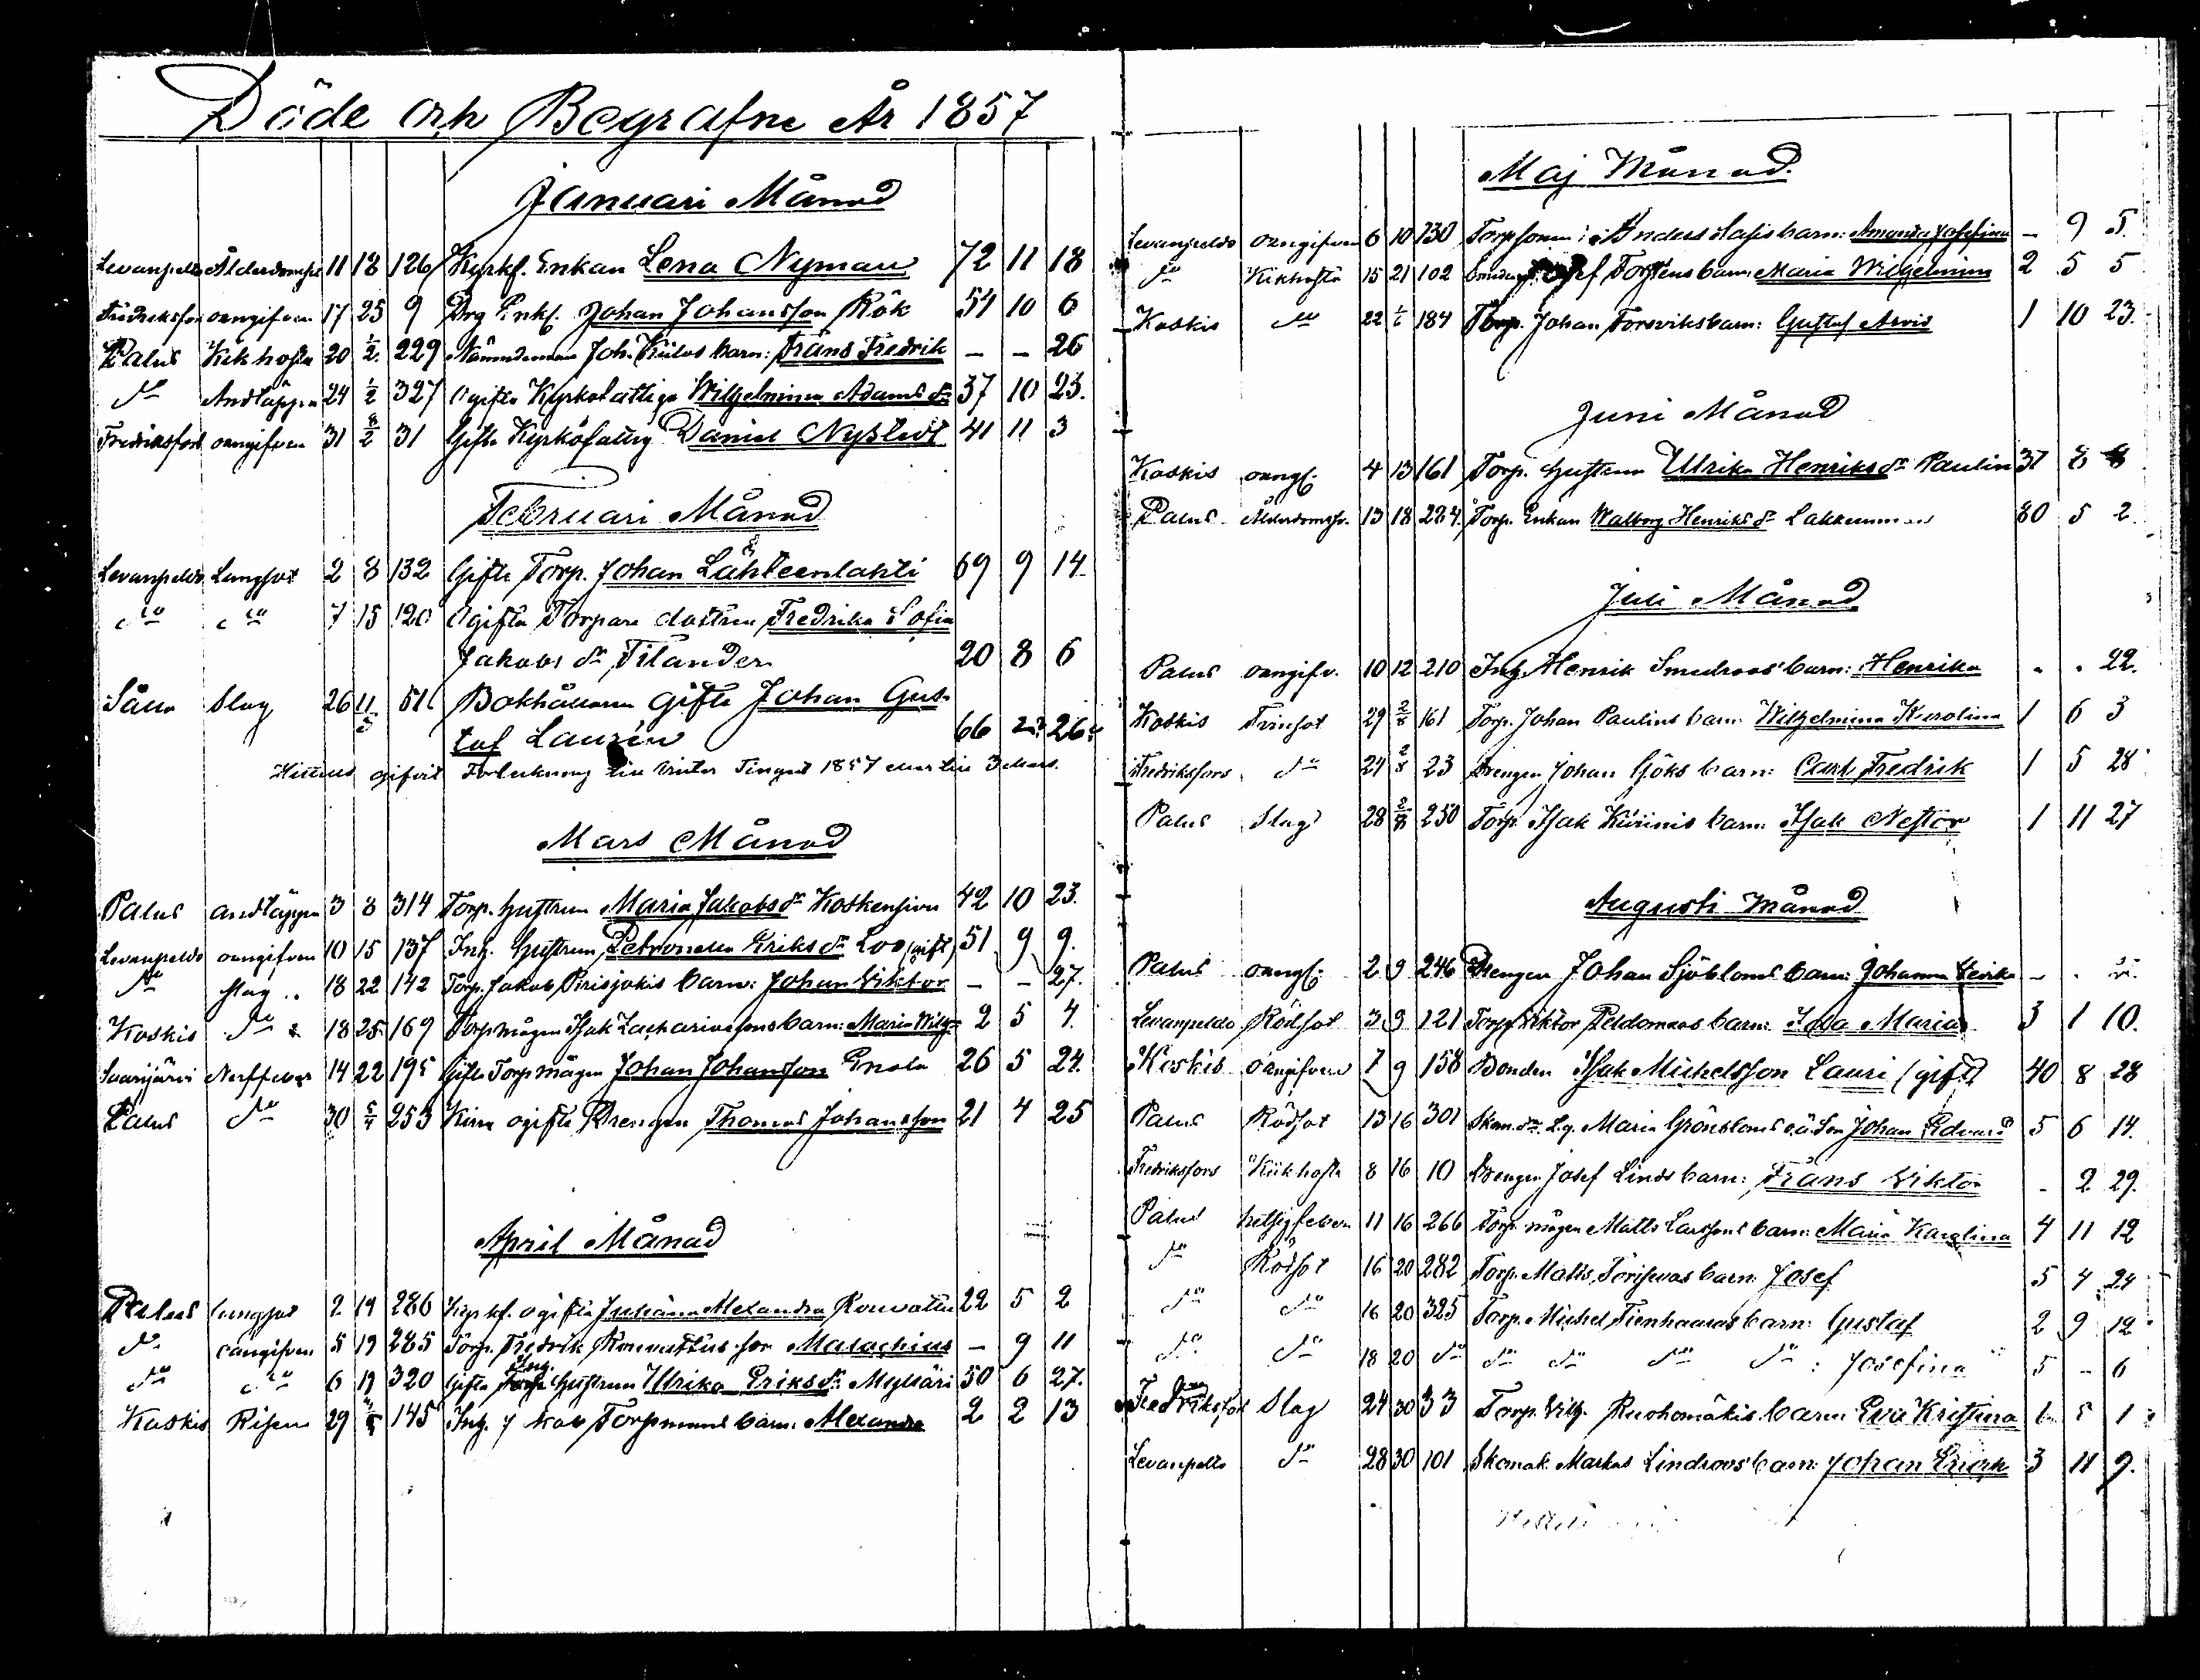 Döde och Begrafne År 1857
Januari Månad
Levanpelto Ålderdomssv 11 18 126 Kyrkf. Enkan Lena Nyman 72 11 18
Fredriksfors oangifven 17 25 9 Drg Enkl. Johan Johansson Kök 54 10 6
Palus Kikhosta 20 1/2 229 Nämndeman Joh. Kulas barn: Frans Fredrik – – 26
do Andtäppa 24 1/2 327 Ogifta Kyrkofattiga Wilhelmina Adams dr 37 10 23.
Fredriksfors oangifven 31 8/2 31 Gifte Kyrkofattig Daniel Nystedt 41 11 3
Februari Månad
Levanpelto Lungsot 2 8 132 Gifte Torp. Johan Lähteenlahti 69 9 14.
do do 7 15 120 Ogifta Torpare dottren Fredrika Sofia
Jakobs dr Tilander 20 8 6
Slag 26 11/3 Bokhållaren Gifte Johan Gus-
taf Laurén 66 26
gifvit till Vinter Tinget 1857 3 Mars.
Mars Månad
Palus andtäppa 3 8 314 Torp. hustrun Maria Jakobs dr Koskensivu 42 10 23.
Levanpelto oangifven 10 15 137 Inh. hustrun Petronella Eriks dr Loo (gift) 51 9 9.
do slag 18 22 142 Torp. Jakob Pirisjokis barn: Johan Viktor – – 27.
Koskis do 18 25 169 Torpmågen Isak Zachariassons barn: Maria Wilh. 2 5 4.
Saarijärvi Nerffeber 14 22 195 Gifte Torpmågen Johan Johansson Enola 26 5 24.
Palus do 30 5/4 253 ogifte Drengen Thomas Johansson 21 4 25
April Månad
Palus lungsot 2 19 286 Kyrkf. ogifta Juliana Alexandra Rouvattu 22 5 2
do oangifven 5 19 285 Torp. Fredrik Rouvattus son Malachias – 9 11
do do 6 19 320 Gifta Inh. hustrun Ulrika Eriks dr Mylläri 50 6 27.
Koskis Risen 29 145 Inh. Torpmans barn: Alexandra 2 2 13
Maj Månad.
Levanpelto oangifven 6 10 130 Torpsonen Anders barn: Amanda Josefina – 9 5.
do Kikhosta 15 21 102 Josef Torstens barn: Maria Wilhelmina 2 5 5
Koskis do 22 184 Torp. Johan Forsviks barn: Gustaf Arvid 1 10 23.
Juni Månad
Koskis oangf. 4 13 161 Torp. hustrun Ulrika Henriks dr Paulin 37 8
Palus Ålderdomssv. 13 18 284 Torp. Enkan Walborg Henriks dr 80 5 2.
Juli Månad
Palus oangifv. 10 12 210 Inh. Henrik Smedroos' barn: Henrika - - 22.
Koskis Trinsot 29 2/8 161 Torp. Johan Paulins barn: Wilhelmina Karolina 1 6 3
Fredriksfors do 24 2/8 23 Drengen Johan Göks barn: Carl Fredrik 1 5 28
Palus Slag 28 2/8 250 Torp. Isak Kiviinis barn: Isak Nestor 1 11 27
Augusti Månad
Palus oangf. 2 9 246 Drengen Johan Sjöbloms barn: Johanna – -
Levanpelto Rödsot 3 9 121 Torp. Viktor Peldomaas barn: Ida Maria 3 1 10.
Koskis oangifven 7 9 158 Bonden Isak Michelsson Lauri (gift) 40 8 28
Palus Rödsot 13 16 301 Maria Grönbloms o.ä. Son Johan Edvard 5 6 14.
Fredriksfors Kikhosta 8 16 10 Drengen Josef Linds barn: Frans Viktor - 2 29.
Palus hetsigfeber 11 16 266 Torp. mågen Matts Larssons barn: Maria Karolina 4 11 12
do Rödsot 16 20 282 Torp. Matts barn: Josef 5 4 24
do do 16 20 325 Torp. Michel Tienhaaras barn: Gustaf 2 9 12
do do 18 20 do do do do do : Josefina 5 – 6
Fredriksfors Slag 24 30 33 Torp. Vilh. Ruohomäkis barn: Eva Kristina 5 1
Levanpelto do 28 30 101 Skomak. Markus Lindroos' barn: Johan Erick 3 11 9.